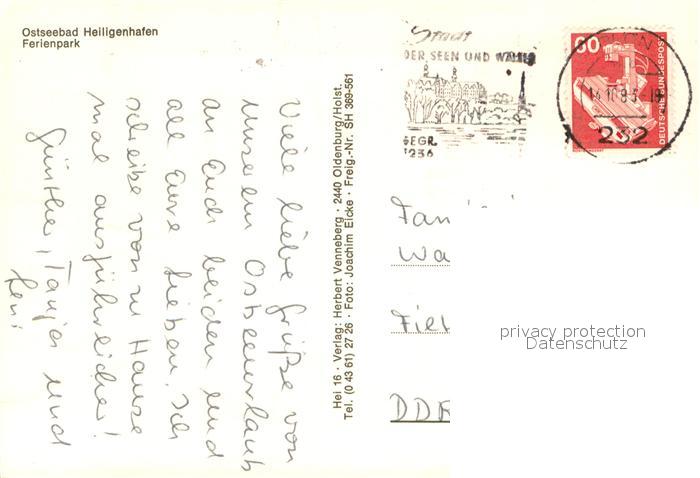 Ostseebad Heiligenhafen
Ferienpark
Viele liebe Grüße von
unserem Ostseeurlaub
an Euch beiden und
all Eure Lieben. Ich
schreibe von zu Hause
mal ausführlicher!
Günther, Tanja und
Hei 16 · Verlag: Herbert Venneberg · 2440 Oldenburg/Holst.
Tel. (0 43 61) 27 26 · Foto: Joachim Eicke · Freig.-Nr. SH 369-561
Stadt
DER SEEN UND WÄLDER
GEGR.
1236
60
DEUTSCHE BUNDESPOST
232
Fam
Wa
DDR
privacy protection
Datenschutz